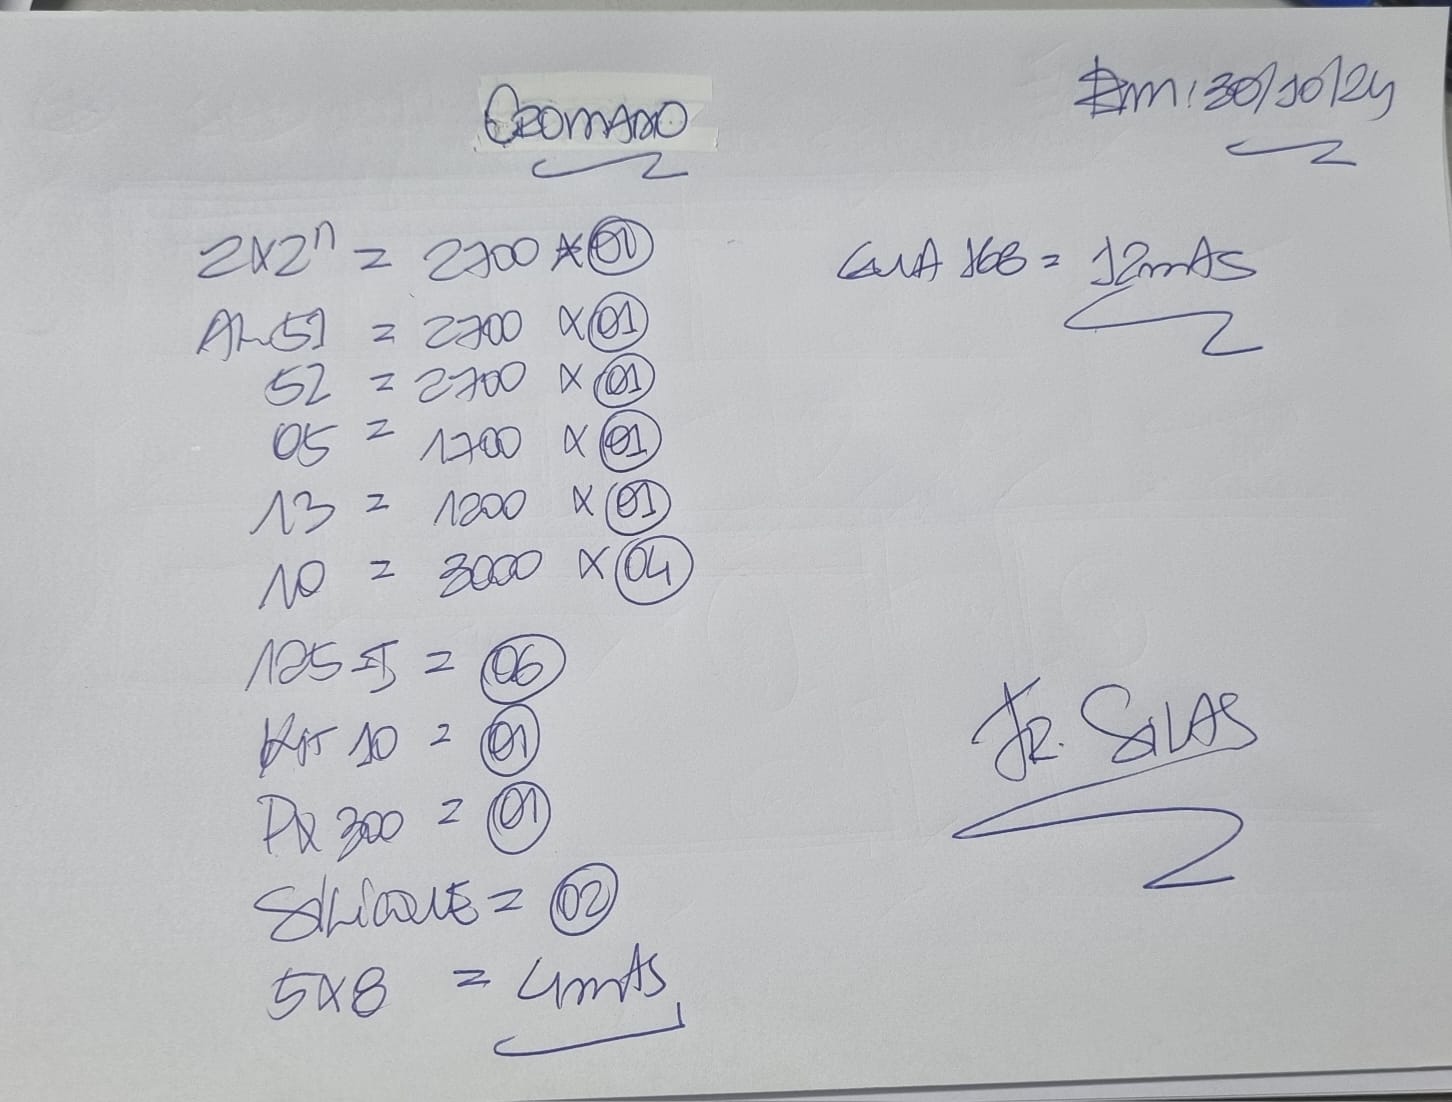 CROMADO
Em: 30/10/24
2x2n = 2700 x 01
AL 51 = 2700 x 01
52 = 2700 x 01
05 = 1700 x 01
13 = 1200 x 01
10 = 3000 x 04
= 06
KIT 10 = 01
300 = 01
SILICONE = 02
5x8 = 4mts
GUA 168 = 12mts
JR. SILAS